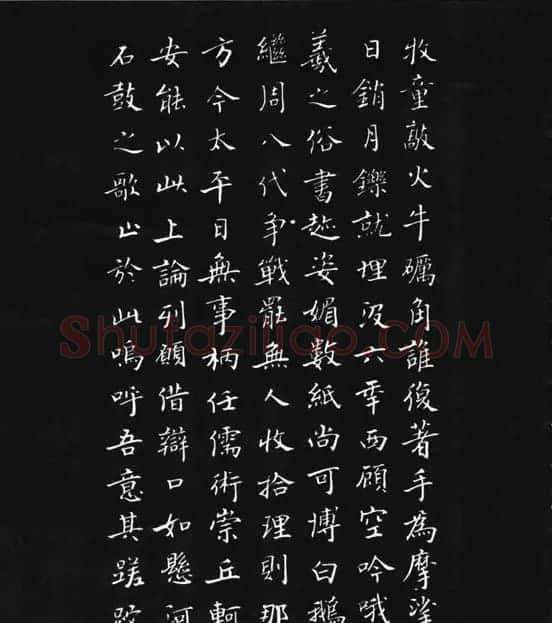 牧童敲火牛礪角誰復著手為摩挲
日銷月鑠就埋沒六年西顧空吟哦
羲之俗書趂姿媚數紙尚可博白鵝
繼周八代爭戰罷無人收拾理則那
方今太平日無事柄任儒術崇丘軻
安能以此上論列願借辯口如懸河
石鼓之歌止於此嗚呼吾意其蹉跎
Shufaziliao.COM